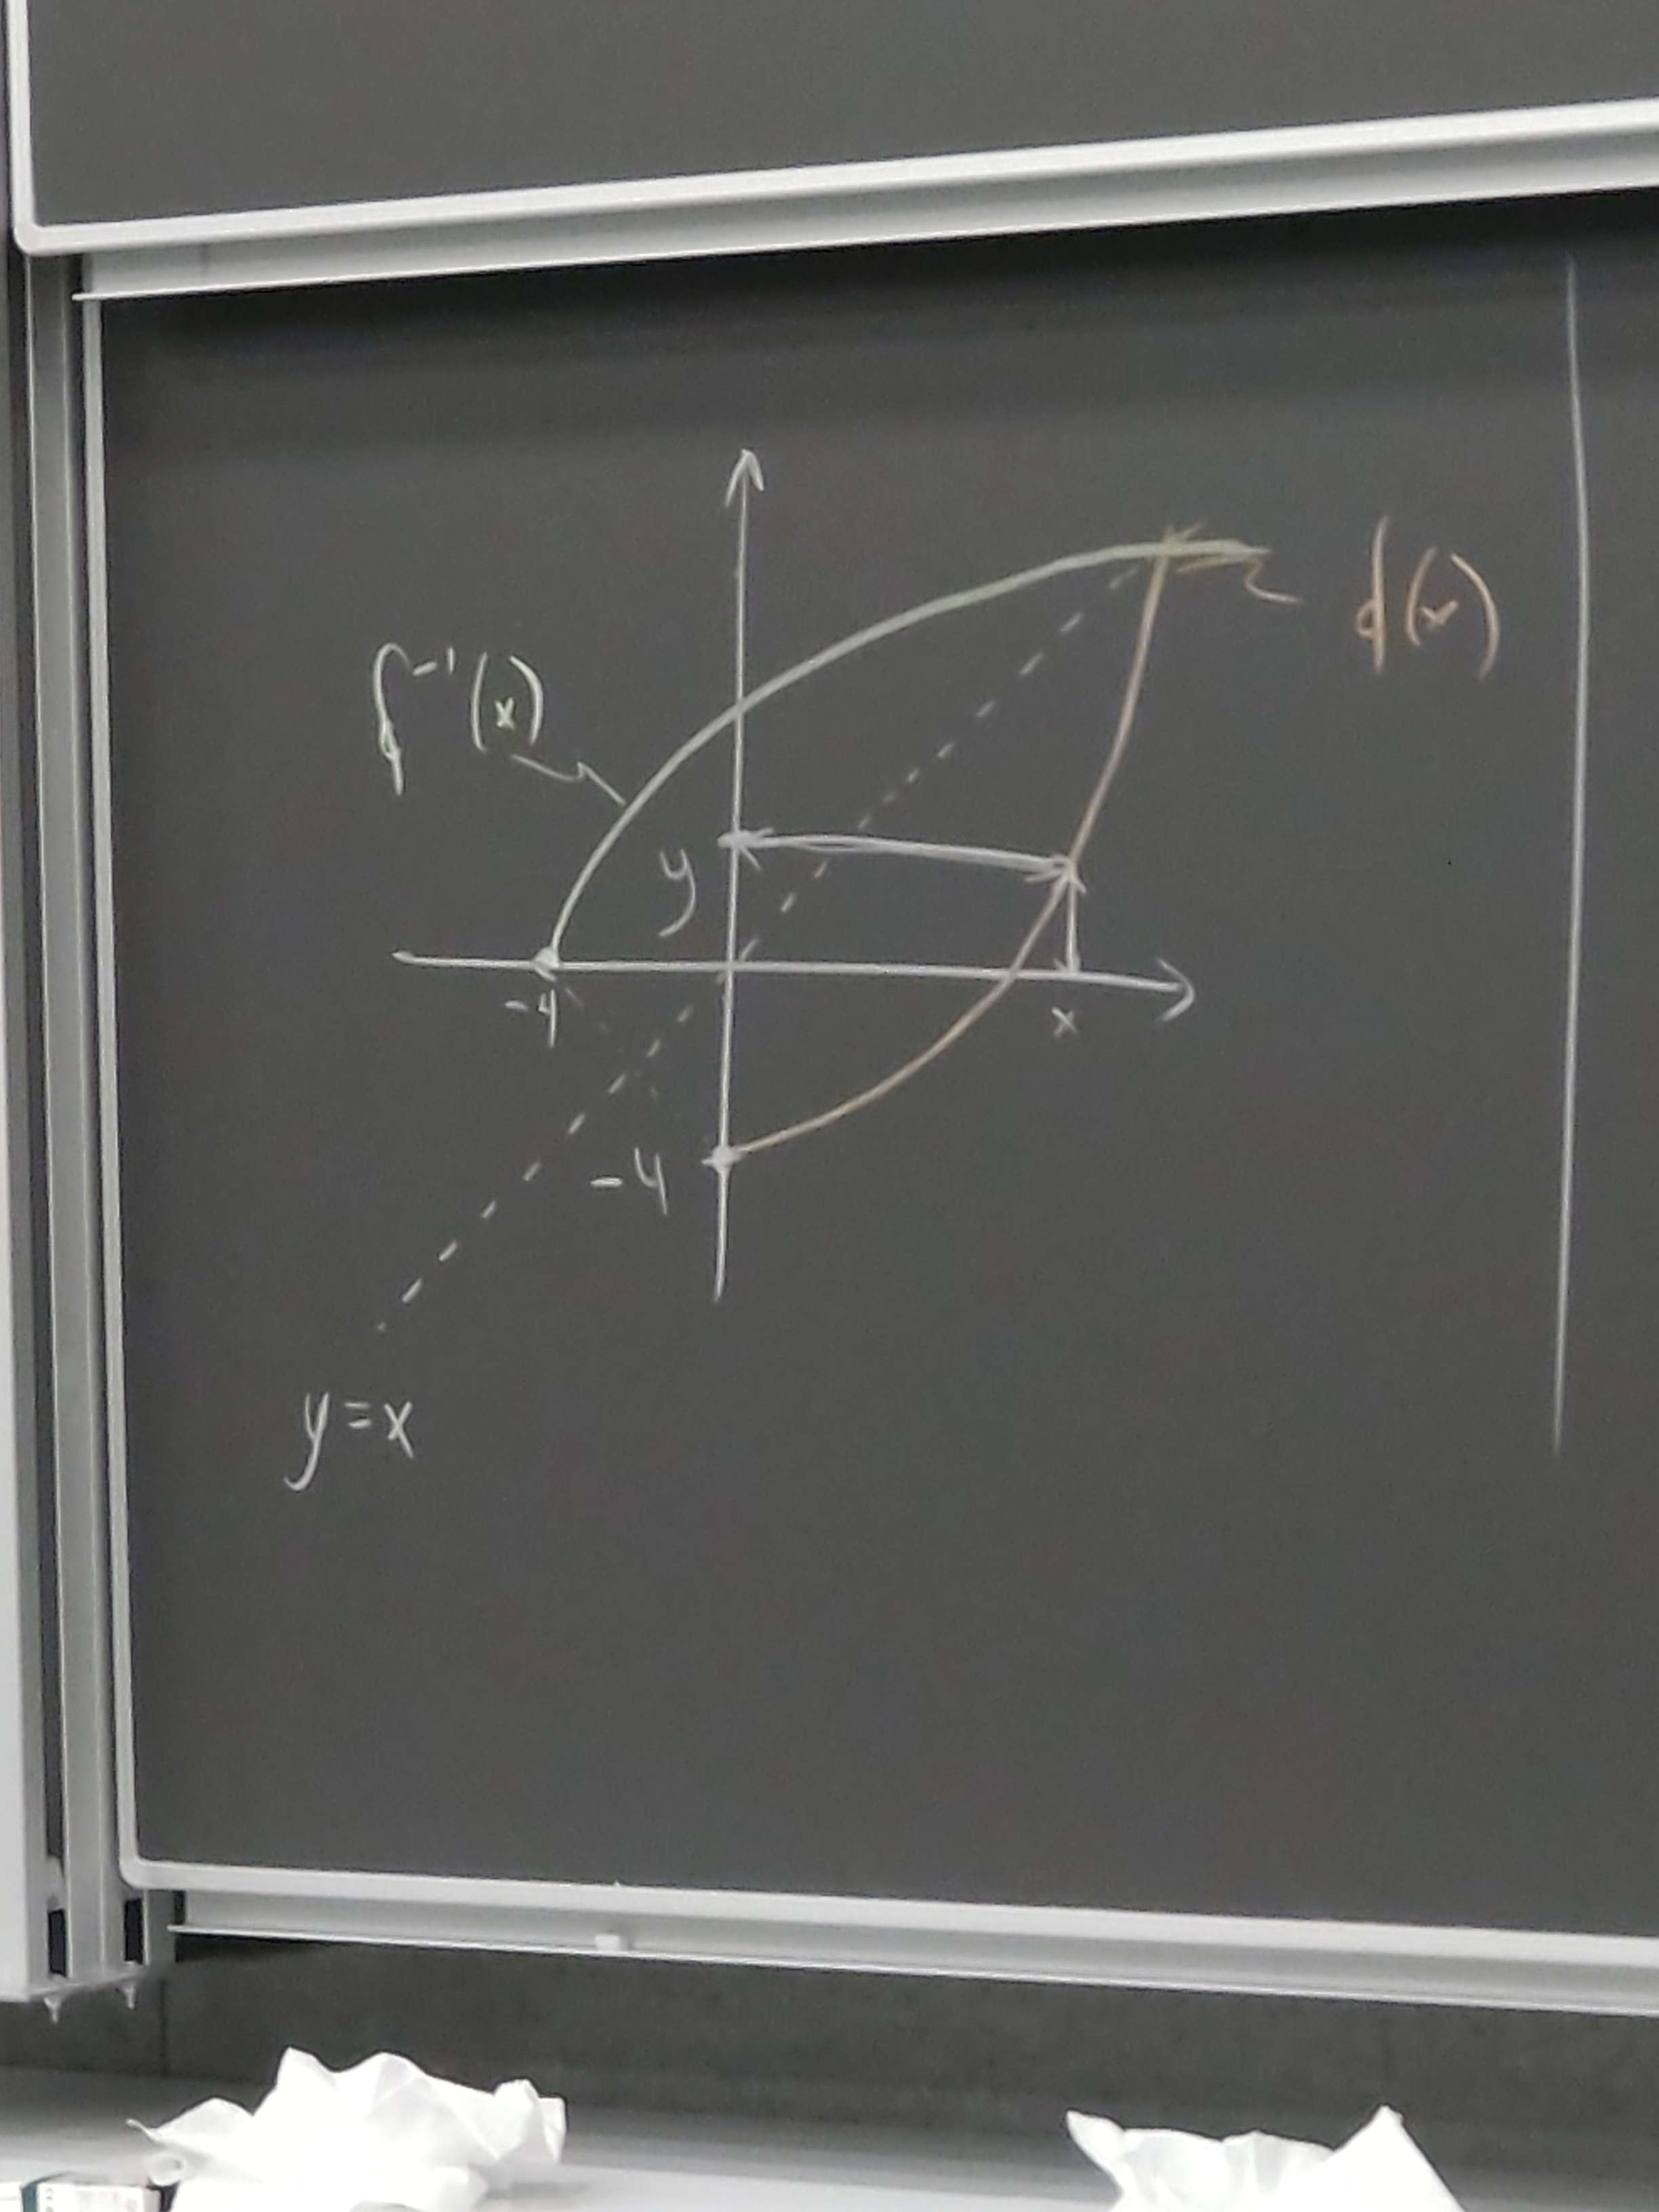 f(x)
f⁻¹(x)
y
-4
x
-4
y=x